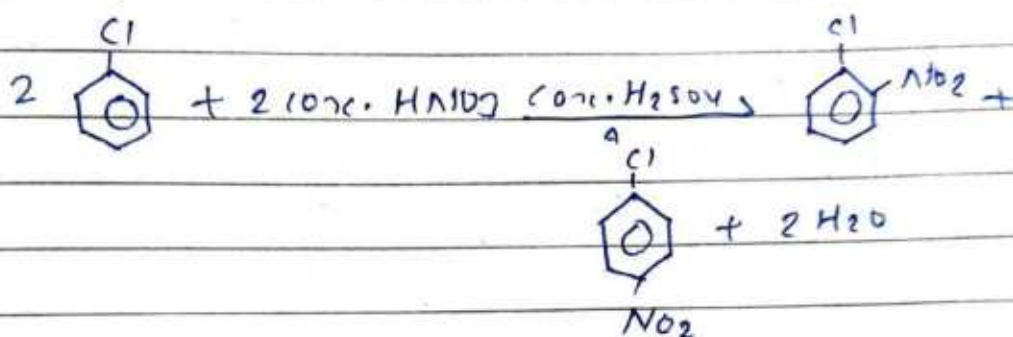 Cl Cl
2 + 2 conc. HNO3 conc. H2SO4 NO2 +
Δ
Cl
+ 2 H2O
NO2